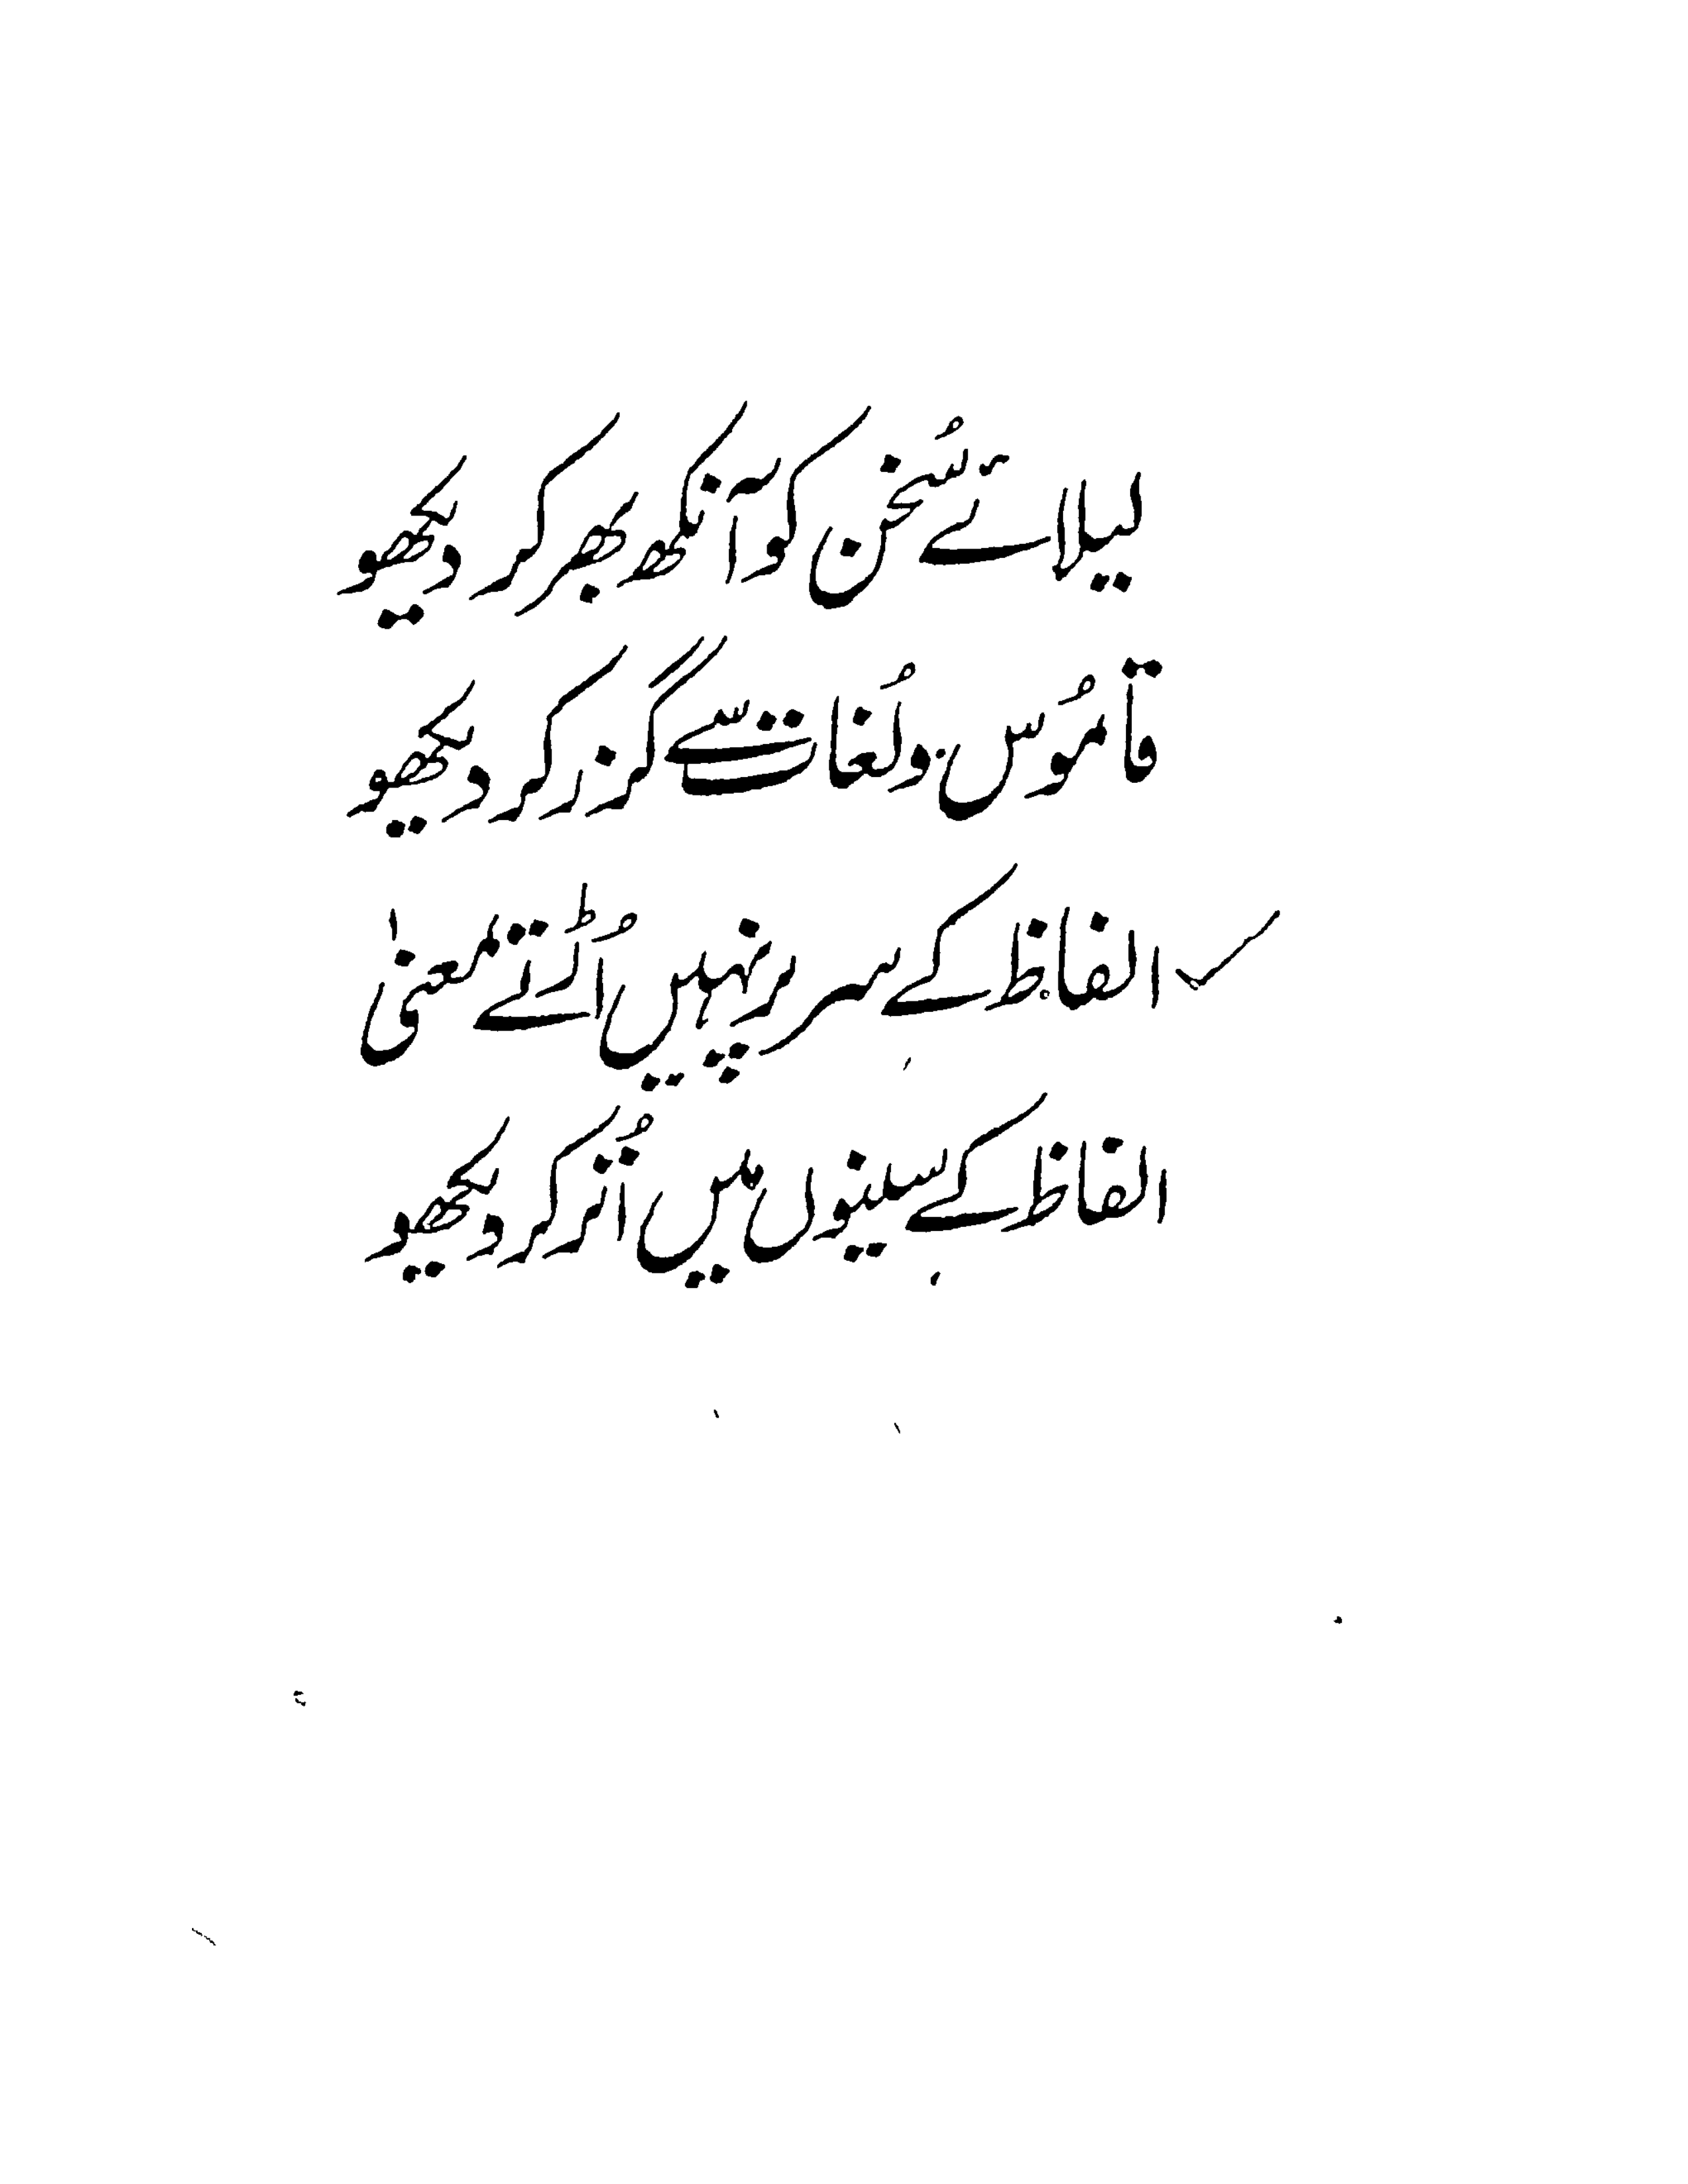 لیلائے سُخن کو آنکھ بھر کر دیکھو
قاموُس و لُغات سے گزر کر دیکھو
الفاظ کے سر پر نہیں اُڑتے معنیٰ
الفاظ کے سینوں میں اُتر کر دیکھو